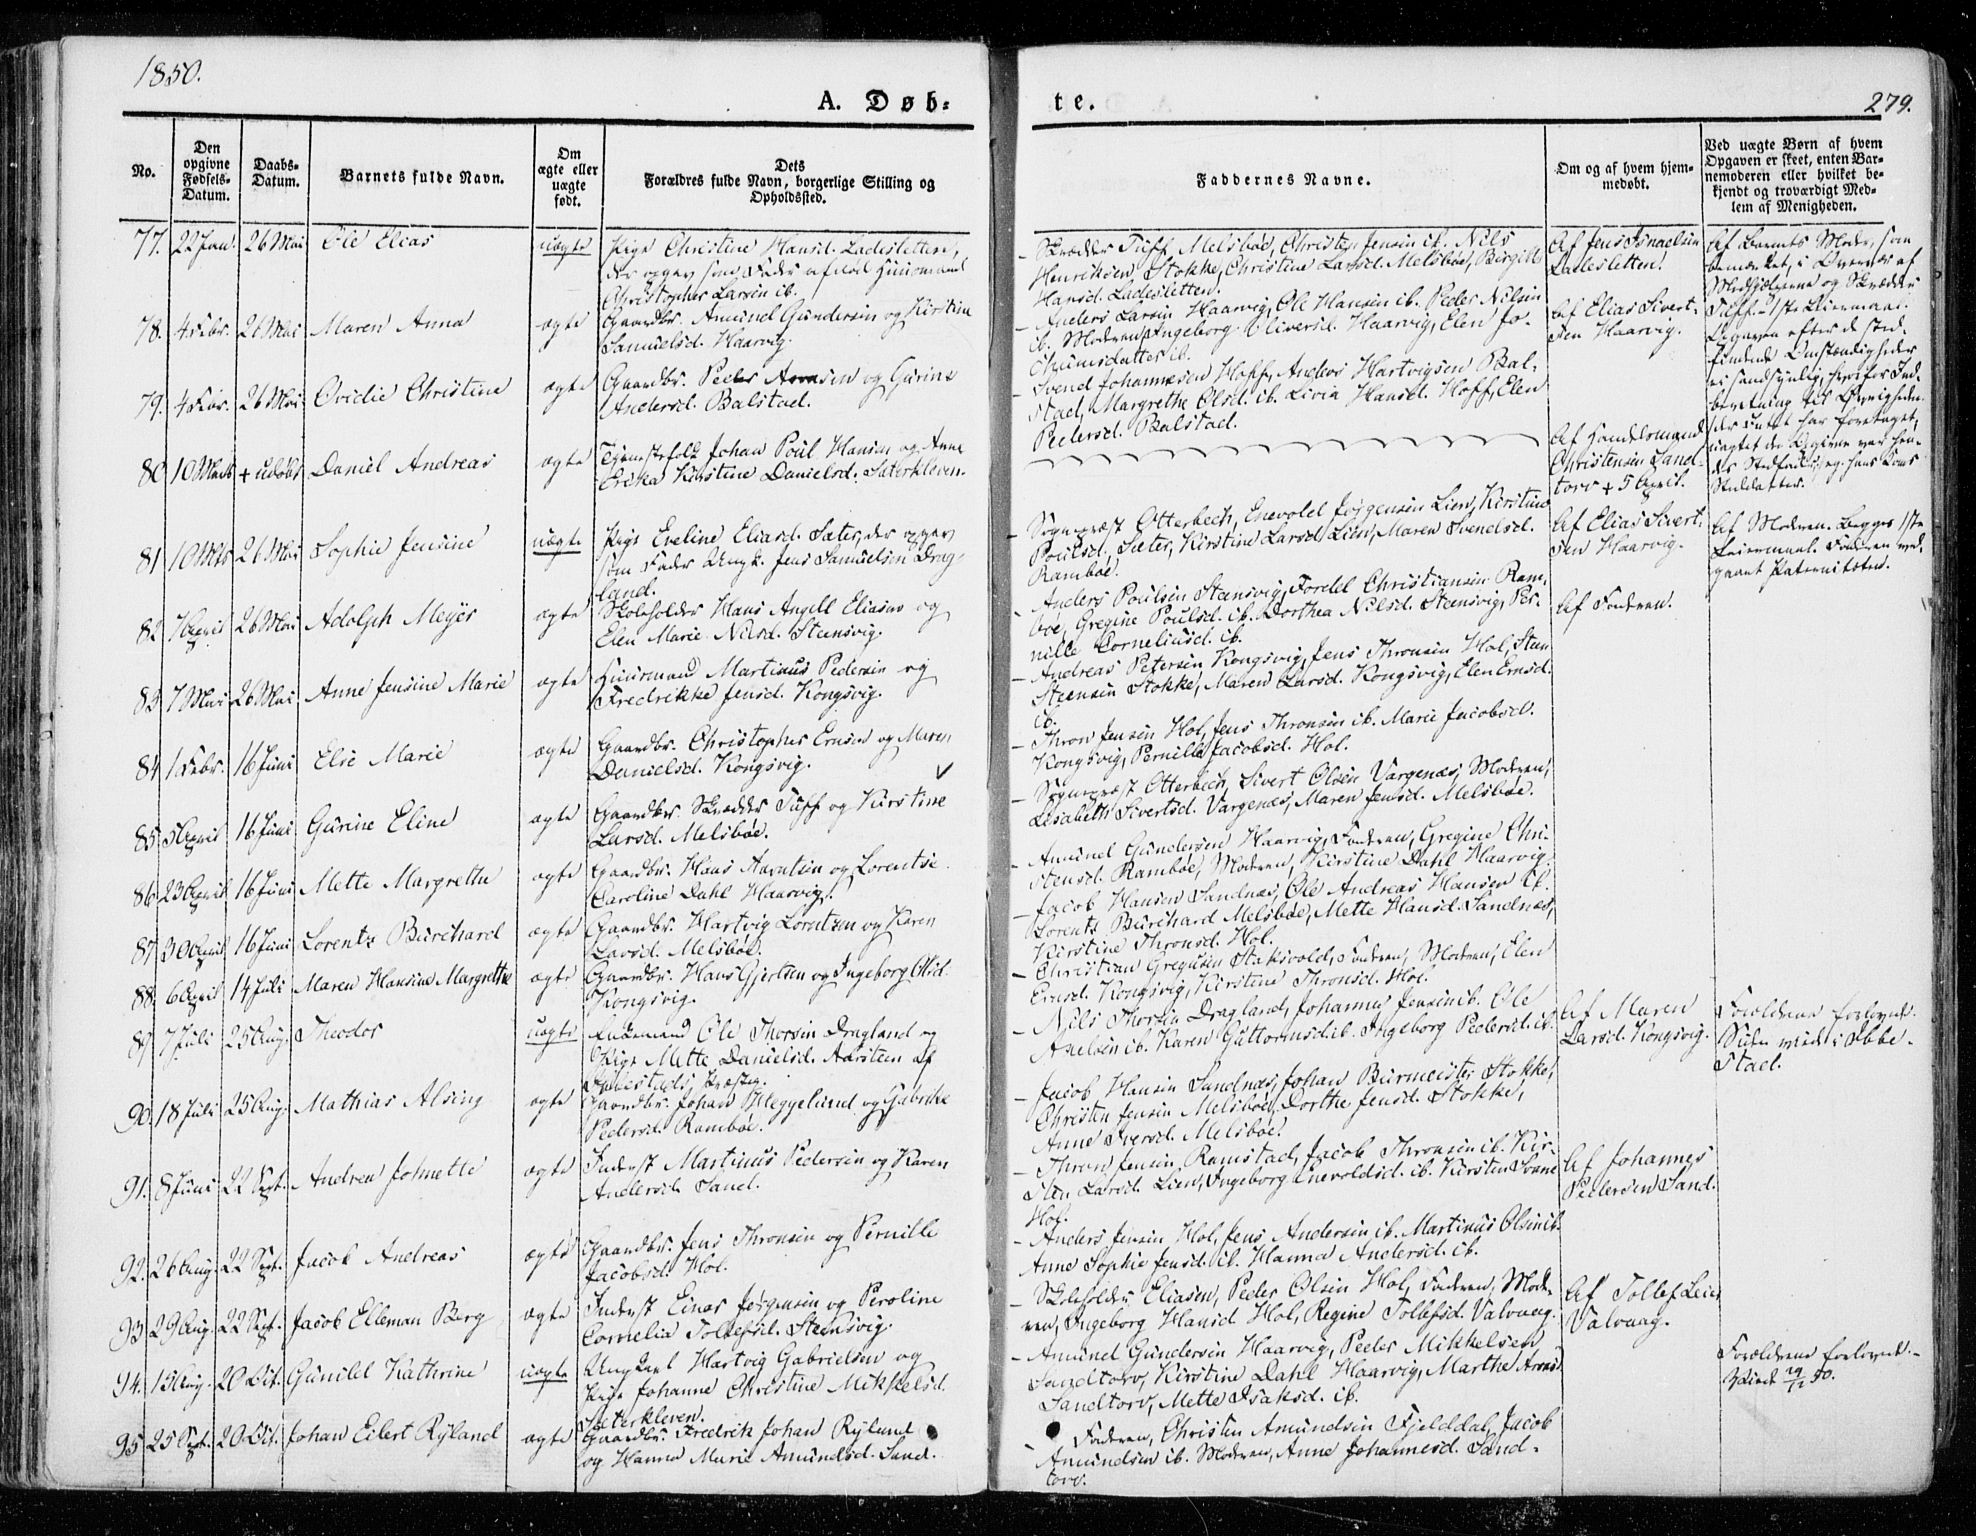 1850.
A. Døb-
te.
279.
No.
Den
opgivne
Fødsels-
Datum.
Daabs-
Datum.
Barnets fulde Navn.
Om
ægte eller
uægte
født.
Dets
Forældres fulde Navn, borgerlige Stilling og
Opholdssted.
Faddernes Navne.
Om og af hvem hjem-
medøbt.
Ved uægte Børn af hvem
Opgaven er skeet, enten Bar-
nemoderen eller hvilket be-
kjendt og troværdigt Med-
lem af Menigheden.
77. 22 Jan. 26 Mai Ole Elias uægte Pige Christine Hansd. Ladesletten,
der opgav som Fader afdød Huusmand
Christopher Larsen ib.
- Skrædder Tuff, Melsbøe, Christen Jensen ib. Nils
Henriksen Stokke, Christine Larsd. Melsbøe, Birgitte
Hansd. Ladesletten.
Af Jens Isaaelsen
Ladesletten.
Af Barnets Moder, som
bemærket, i Overvær af
Medhjælperne og Skrædder
Tuff. - 1ste Leiermaal.
Opgaven efter de sted-
findende Omstændigheder
ei sandsynlig, hvorfor Ind-
beretning til Øvrigheden
78. 4 Febr. 26 Mai Maren Anna ægte Gaardbr. Amund Gundersen og Kirstine
Samuelsd. Haarvig.
- Anders Larsen Haarvig, Ole Hansen ib. Peder Nilsen
ib. Moderen, Ingeborg Oliversd. Haarvig, Elen Jo-
chumsdatter ib.
Af Elias Sivert-
sen Haarvig.
79. 4 Febr. 26 Mai Ovidie Christine ægte Gaardbr. Peder Arnsen og Gurine
Andersd. Balstad.
- Svend Johannesen Hoff, Anders Hartvigsen Bal-
stad, Margrethe Olsd. ib. Livia Hansd. Hoff, Elen
Pedersd. Balstad.
80 10 Marts + udøbt Daniel Andreas ægte Tjenestefolk Johan Poul Hansen og Anne
Erika Kirstine Danielsd. Sæterkleven.
Af Handelsmand
Christensen Sand-
torv + 5 April.
81 10 Mts 26 Mai Sophie Jensine uægte Pige Eveline Eliasd. Sæter, der opgav
som Fader Ungk. Jens Samuelsen Drag-
land.
- Sognepræst Otterbech, Enevold Jørgensen Lien, Kirstine
Poulsd. Sæter, Kirstine Larsd. Lien, Maren Svendsd.
Rambøe.
Af Elias Sivert-
sen Haarvig.
Af Moderen. Begges 1ste
Leiermaal. Faderen ved-
gaaet Paterniteten.
82 7 April 26 Mai Adolph Meyer ægte Skoleholder Hans Angell Eliasen og
Elen Marie Nilsd. Steensvig.
- Anders Poulsen Steensvig, Fordel Christiansen Ram-
bøe, Gregine Poulsd. ib. Dorthea Nilsd. Steensvig, Per-
nille Corneliusd. ib.
Af Faderen.
83 7 Mai 26 Mai Anne Jensine Marie ægte Huusmand Martinus Pedersen og
Fredrikke Jensd. Kongsvig.
- Andreas Petersen Kongsvig, Jens Thronsen Hol, Sten
Steensen Stokke, Maren Larsd. Kongsvig, Elen Ernsd.
ib.
84 1 Febr. 16 Juni Elie Marie ægte Gaardbr. Christopher Ernsen og Maren
Danielsd. Kongsvig.
- Thron Jensen Hol, Jens Thronsen ib. Marie Jacobsd.
Kongsvig, Pernille Jacobsd. Hol.
85 5 April 16 Juni Gurine Eline ægte Gaardbr. Skrædder Tuff og Kirstine
Larsd. Melsbøe.
- Sognepræst Otterbech, Sivert Olsen Vargenæs, Moderen,
Lisabeth Sivertsd. Vargenæs, Maren Jensd. Melsbøe.
86 23 April 16 Juni Mette Margrethe ægte Gaardbr. Hans Arentsen og Lorentse
Caroline Dahl Haarvig.
- Amund Gundersen Haarvig, Faderen, Gregine Chri-
stensd. Rambøe, Moderen, Kirstine Dahl Haarvig.
87 30 April 16 Juni Lorentz Burchard ægte Gaardbr. Hartvig Lorntzen og Karen
Larsd. Melsbøe.
- Jacob Hansen Sandnæs, Ole Andreas Hansen ib.
Lorents Burchard Melsbøe, Mette Hansd. Sandnæs,
Kirstine Thronsd. Hol.
88. 6 April 14 Juli Maren Hansine Margrethe ægte Gaardbr. Hans Gjertsen og Ingeborg Olsd.
Kongsvig.
- Christian Gregusen Staksvold, Faderen, Moderen, Elen
Ernsd. Kongsvig, Kirstine Thronsd. Hol.
89 7 Juli 25 Aug. Theodor uægte Enkemand Ole Thorsen Dragland og
Pige Mette Danielsd. Aarsteen af
Ibbestads Præstg.
- Nils Thorsen Dragland, Johannes Jensen ib. Ole
Axelsen ib. Karen Guttormsd. ib. Ingeborg Pedersd. ib.
Af Maren
Larsd. Kongsvig.
Forældrene forlovede.
Siden viede i Ibbe-
stad.
90. 18 Juli 25 Aug. Mathias Alsing ægte Gaardbr. Johan Meggelund og Gabrike
Pedersd. Rambøe.
- Jacob Hansen Sandnæs, Johan Burmeister Stokke,
Christen Jensen Melsbøe, Dorthe Jensd. Stokke,
Anne Iversd. Melsbøe.
91. 8 Juni 22 Sept. Andrea Johnette ægte Inderst Martinus Pedersen og Karen
Andersd. Sand.
- Thron Jensen, Ramstad, Jacob Thronsen ib. Kir-
sten Larsd. Lien, Ingeborg Enevoldsd. ib. Kirsten Svane
Hol.
Af Johannes
Pedersen Sand.
92. 26 Aug. 22 Sept. Jacob Andreas ægte Gaardbr. Jens Thronsen og Pernille
Jacobsd. Hol.
- Anders Jensen Hol, Jens Andersen ib. Martinus Olsen ib.
Anne Sophie Jensd. ib. Hanna Andersd. ib.
93 29 Aug. 22 Sept. Jacob Elleman Berg ægte Inderst Einar Jørgensen og Peroline
Cornelia Tollefsd. Steensvig.
- Skoleholder Eliasen, Peder Olsen Hol, Faderen, Mode-
ren, Ingeborg Hansd. Hol, Regine Tollefsd. Valvaag.
Af Tollef Leier
Valvaag.
94. 15 Aug. 20 Oct. Gunild Kathrine uægte Ungkarl Hartvig Gabrielsen og
Pige Johanne Christine Mikkelsd.
Sæterkleven.
- Amund Gundersen Haarvig, Peder Mikkelsen
Sandtorv, Kirstine Dahl Haarvig, Marthe Arnsd.
Sandtorv, Mette Isaksd. ib.
Forældrene forlovede. -
50.
95 25 Sept. 20 Oct. Johan Eilert Ryland ægte Gaardbr. Fredrik Johan Ryland
og Hanna Marie Amundsd. Sand.
- Faderen, Christen Amundsen Fjelddal, Jacob
Amundsen ib. Moderen, Anne Johannesd. Sand-
torv.